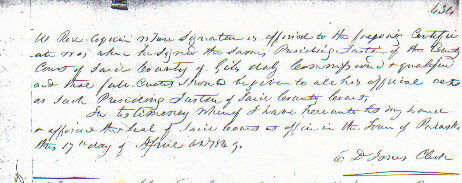 434
W Rose Esquire whose Signature is affixed to the foregoing Certificate
at was when he signed the same Presiding Justice of the County
Court of Said County of Giles duly Commissioned & qualified
and that full Credit should be given to all his official acts
as Such Presiding Justice of Said County Court.
In testimony Whereof I have hereunto set my hand
& affixed the Seal of Said Court at office in the Town of Pulaski
this 17th day of April 1849.
E D Jones Clerk